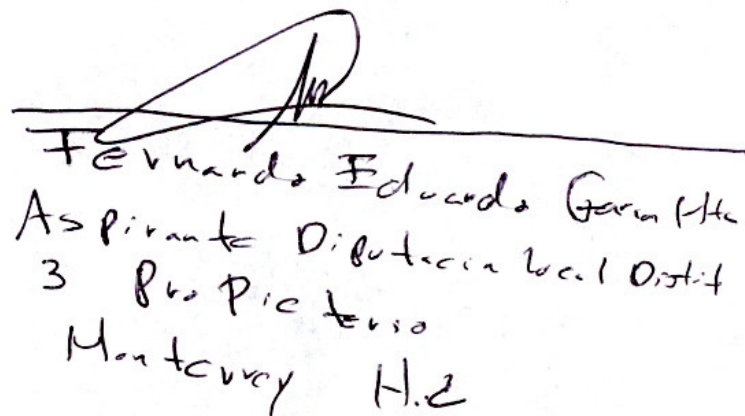 Fernando Eduardo Garza Htz
Aspirante Diputacion local Distrit
3 Propietario
Monterrey N.L